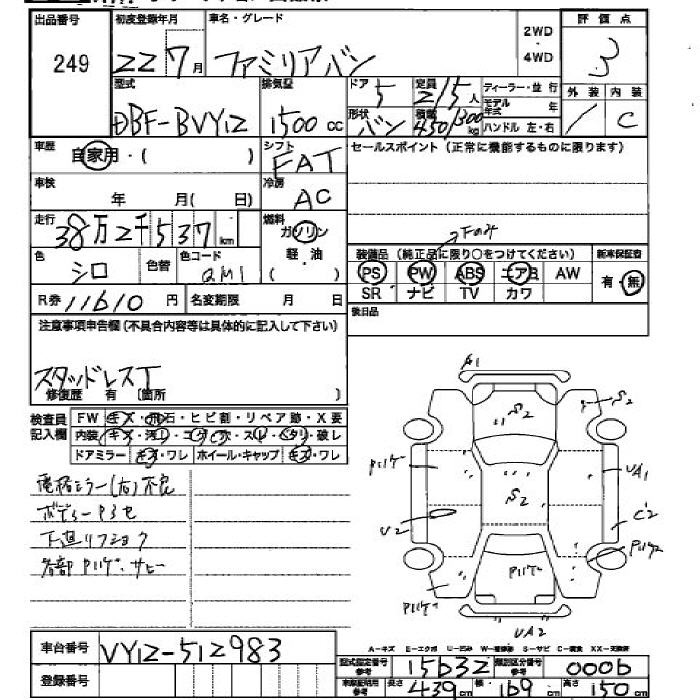 出品番号 初度登録年月 車名・グレード 2WD・4WD 評価点
249 22 7月 ファミリアバン 3
型式 排気量 ドア 5 定員 2/5人 ディーラー・並行 外装 内装
DBF-BVY12 1500cc 形状 バン 積載 450/300kg モデル年式 年 ハンドル 左・右 / C
車歴 自家用・( ) シフト FAT セールスポイント (正常に機能するものに限ります)
車検 年 月( 日) 冷房 AC
走行 38万2千537km 燃料 ガソリン 軽・油 ( )
Fのみ
色 シロ 色替 色コード QM1 装備品 (純正品に限り○をつけてください) 新車保証書
PS PW ABS エアB AW 有・無
SR ナビ TV カワ
R券 11610円 名変期限 月 日 後日品
注意事項申告欄(不具合内容等は具体的に記入して下さい)
スタッドレスT
修復歴 有 〔箇所 〕
検査員記入欄 FW キズ・飛石・ヒビ割・リペア跡・X要
内装 キズ・汚レ・コゲ・穴・スレ・ヘタリ・破レ
ドアミラー キズ・ワレ ホイール・キャップ キズ・ワレ
電格ミラー(右)不良
下廻リフショク
各部 P ハゲ・サビー
A1
S2 S2
Pハゲ UA1
U2 S2 C2
Pハゲ
Pハゲ
Pハゲ
UA2
A-キズ E-エクボ U-凹み W-補修跡 S-サビ C-腐食 XX-交換済
車台番号 VY12-512983
登録番号
型式指定番号 参考 15632 類別区分番号 参考 0006
参考 長さ 439cm 幅 169cm 高さ 150cm